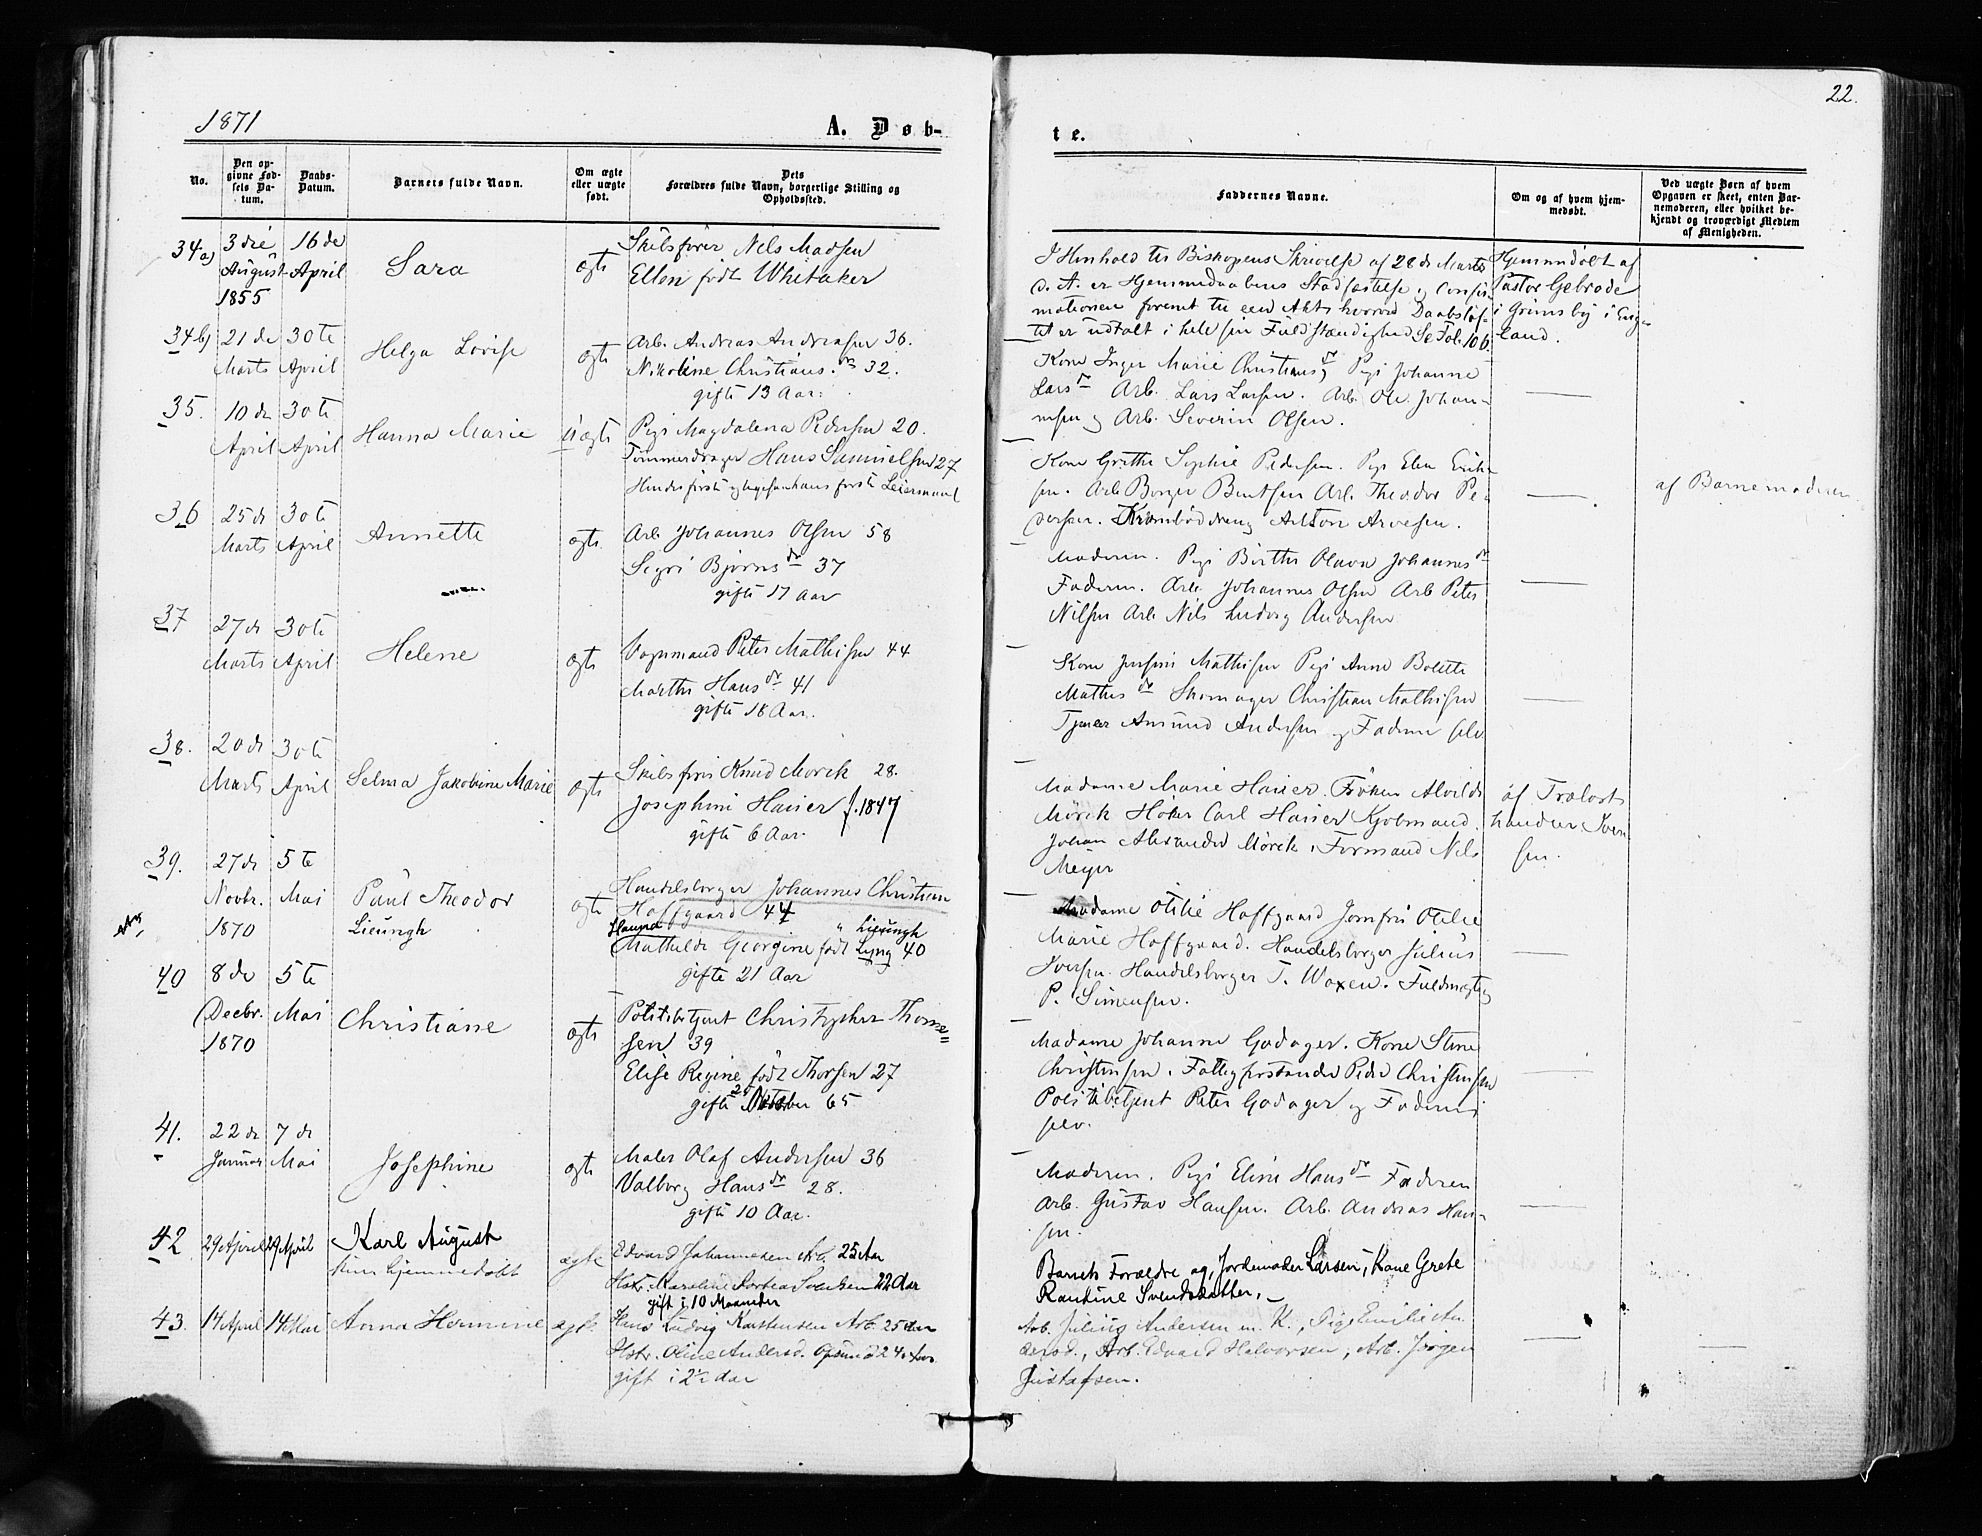 1871
A. Døb-
No.
Den op-
givne Fød-
sels Da-
tum.
Daabs-
Datum.
Barnets fulde Navn.
Om ægte
eller uægte
født.
Dets
Forældres fulde Navn, borgerlige Stilling og
Opholdssted.
34a)
3die
August
1855
16de
April
Sara
ægte
Skibsfører Nels Madsen
Ellen født Whitaker
34b)
21de
Marts
30te
April
Helga Lovise
ægte
Arb. Andreas Andreasen 36.
Nikoline Christians. dr 32.
gifte 13 Aar.
35.
10de
April
30te
April
Hanna Marie
uægte
Pige Magdalena Pedersen 20.
Tømmerdrager Hans Samuelsen 27
Hendes første og ligesaa hans første Leiermaal
36
25de
Marts
30te
April
Annette
ægte
Arb. Johannes Olsen 58
Sigri Bjørns dr 37
gifte 17 Aar
37
27de
Marts
30te
April
Helene
ægte
Vognmand Peter Mathisen 44
Marthe Hans dr 41
gifte 18 Aar.
38.
20de
Marts
30te
April
Selma Jakobine Marie
ægte
Skibsfører Knud Mørck 28.
Josephine Hauer f. 1847
gifte 6 Aar.
39.
27de
Novbr.
1870
5te
Mai
Paul Theodor
Lieungh
ægte
Handelsborger Johannes Christian
Hoffgaard 44
" Lieungh
Mathilde Georgine født Lyng 40
gifte 21 Aar
40
8de
Decbr.
1870
5te
Mai
Christiane
ægte
Politibetjent Christopher Thome=
sen 39
Elise Regine født Thorsen 27
gifte 25 Oktober 65
41.
22de
Januar
7de
Mai
Josephine
ægte
Maler Olaf Andersen 36
Valborg Hans dr 28.
gifte 10 Aar.
42
29 April
29 April
Karl August
kun hjemmedøbt
ægte
Edvard Johannesen Arb. 25 Aar
Hstr. Karoline Dorthea Svendsen 22 Aar
gift i 10 Maaneder
43.
14 April
14 Mai
Anna Hermine
ægte
Hans Ludvig Karstensen Arb. 25 Aar
Hstr. Oline Andersd. Opsund 24 Aar.
gift i 2½ Aar
te.
22.
Faddernes Navne.
Om og af hvem hjem-
medøbt.
Ved uægte Børn af hvem
Opgaven er skeet, enten Bar-
nemoderen, eller hvilket be-
kjendt og troværdigt Medlem
af Menigheden.
I Henhold til Biskopens Skrivelse af 28de Marts
d. A. er Hjemmedaabens Stadfæstelse og Confir-
mationen foreenet til een Akt, hvorved Daabsløf-
tet er udtalt i hele sin Fuldstændighed. Se Fol. 106.
Hjemmedøbt af
Pastor Gebrode
i Grimsby i Eng-
land.
Kone Inger Marie Christians dr, Pige Johanne
Lars dr Arb. Lars Larsen. Arb. Ole Johan-
nesen og Arb. Severin Olsen.
Kone Grethe Sophie Pedersen. Pige Elen Erik-
sen. Arb. Borger Berntsen Arb. Theodor Pe-
dersen. Kramboddreng Anton Arvesen.
af Barnemoderen
Moderen. Pige Birthe Olava Johannes dr
Faderen. Arb. Johannes Olsen Arb Peter
Nilsen Arb. Nils Ludvig Andersen
Kone Josefine Mathisen Pige Anne Bolette
Mathis dr Skomager Christian Mathisen
Tjener Amund Andersen og Faderen selv
Madame Marie Hauer. Frøken Alvilde
Mørck Høker Carl Hauer Kjøbmand
Johan Alexander Mørck. Formand Nils
Meyer
af Trælast
handler Iver
sen.
Madame Otilie Hoffgaard Jomfru Otilie
Marie Hoffgaard. Handelsborger Julius
Iversen. Handelsborger T. Woxen. Fuldmægtig
P. Simensen.
Madame Johanne Godager. Kone Stine
Christensen. Fattigforstander Peder Christensen
Politibetjent Peter Godager og Faderen
selv.
Moderen. Pige Eline Hans dr Faderen
Arb. Gustav Hansen. Arb. Andreas Han-
sen.
Barnets Forældre og, Jordemoder Larsen, Kone Grete
Rantine Svendsdatter. –
Arb. Julius Andersen m. K., Pige Emilie An
dersd., Arb. Edvard Halvorsen, Arb. Jørgen
Gustafsen.